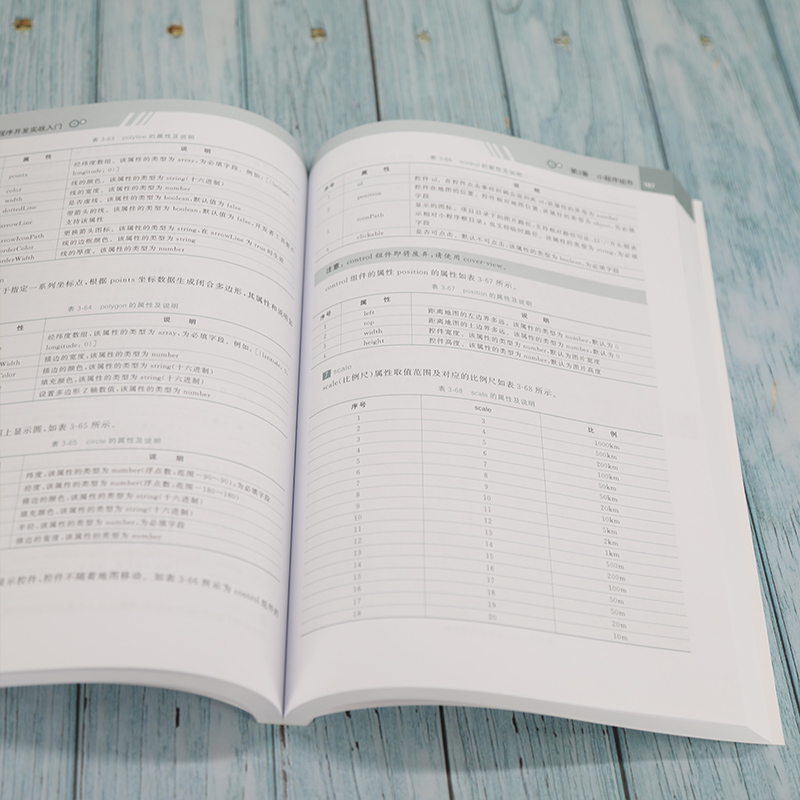 程序开发实战入门
表 3-63 polyline 的属性及说明
属 性 说 明
points 经纬度数组, 该属性的类型为 array, 为必填字段, 例如, [{latitude:
longitude: 0}]
color 线的颜色, 该属性的类型为 string(十六进制)
width 线的宽度, 该属性的类型为 number
dottedLine 是否虚线, 该属性的类型为 boolean, 默认值为 false
arrowLine 带箭头的线, 该属性的类型为 boolean, 默认值为 false, 开发者工具暂不
支持该属性
arrowIconPath 更换箭头图标, 该属性的类型为 string, 在 arrowLine 为 true 时生效
borderColor 线的边框颜色, 该属性的类型为 string
borderWidth 线的厚度, 该属性的类型为 number
于指定一系列坐标点, 根据 points 坐标数据生成闭合多边形, 其属性和说明如
表 3-64 polygon 的属性及说明
性 说 明
经纬度数组, 该属性的类型为 array, 为必填字段, 例如, [{latitude:
longitude: 0}]
Width 描边的宽度, 该属性的类型为 number
Color 描边的颜色, 该属性的类型为 string(十六进制)
填充颜色, 该属性的类型为 string(十六进制)
设置多边形 Z 轴数值, 该属性的类型为 number
图上显示圆, 如表 3-65 所示。
表 3-65 circle 的属性及说明
说 明
纬度, 该属性的类型为 number(浮点数, 范围 -90~90), 为必填字段
经度, 该属性的类型为 number(浮点数, 范围 -180~180)
描边的颜色, 该属性的类型为 string(十六进制)
填充颜色, 该属性的类型为 string(十六进制)
半径, 该属性的类型为 number, 为必填字段
描边的宽度, 该属性的类型为 number
显示控件, 控件不随着地图移动。如表 3-66 所示为 control 组件的
第3章 小程序组件 187
表 3-66 control 的属性及说明
序号 属 性 说 明
1 id 控件 id, 在控件点击事件回调会返回此 id, 该属性的类型为 number
2 position 控件在地图的位置, 控件相对地图位置, 该属性的类型为 object, 为必填
字段
3 iconPath 显示的图标, 项目目录下的图片路径, 支持相对路径写法, 以'/'开头则表
示相对小程序根目录; 也支持临时路径, 该属性的类型为 string, 为必填
字段
4 clickable 是否可点击, 默认不可点击, 该属性的类型为 boolean, 为必填字段
注意: control 组件即将废弃, 请使用 cover-view。
control 组件的属性 position 的属性如表 3-67 所示。
表 3-67 position 的属性及说明
序号 属 性 说 明
1 left 距离地图的左边界多远, 该属性的类型为 number, 默认为 0
2 top 距离地图的上边界多远, 该属性的类型为 number, 默认为 0
3 width 控件宽度, 该属性的类型为 number, 默认为图片宽度
4 height 控件高度, 该属性的类型为 number, 默认为图片高度
7 scale
scale(比例尺)属性取值范围及对应的比例尺如表 3-68 所示。
表 3-68 scale 的属性及说明
序号 scale 比 例
1 3 1000km
2 4 500km
3 5 200km
4 6 100km
5 7 50km
6 8 50km
7 9 20km
8 10 10km
9 11 5km
10 12 2km
11 13 1km
12 14 500m
13 15 200m
14 16 100m
15 17 50m
16 18 50m
17 19 20m
18 20 10m